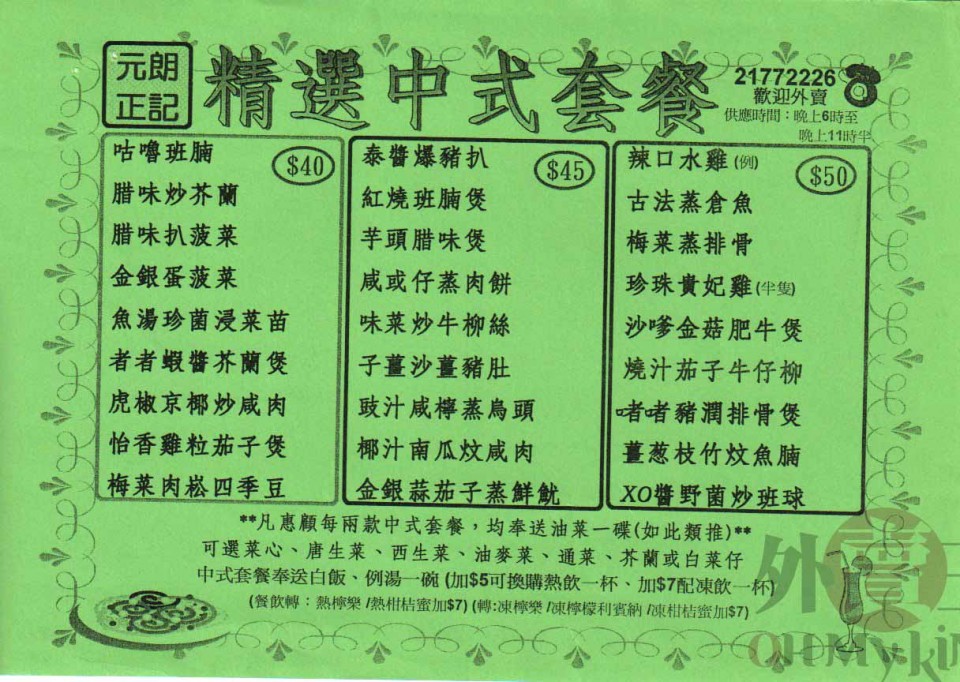 元朗
正記
精選中式套餐
21772226
歡迎外賣
供應時間：晚上6時至
晚上11時半
$40
咕嚕班腩
腊味炒芥蘭
腊味扒菠菜
金銀蛋菠菜
魚湯珍菌浸菜苗
者者蝦醬芥蘭煲
虎椒京椰炒咸肉
怡香雞粒茄子煲
梅菜肉崧四季豆
$45
泰醬爆豬扒
紅燒班腩煲
芋頭腊味煲
咸或仔蒸肉餅
味菜炒牛柳絲
子薑沙薑豬肚
豉汁咸檸蒸烏頭
椰汁南瓜炆咸肉
金銀蒜茄子蒸鮮魷
$50
辣口水雞(例)
古法蒸倉魚
梅菜蒸排骨
珍珠貴妃雞(半隻)
沙嗲金菇肥牛煲
燒汁茄子牛仔柳
啫啫豬潤排骨煲
薑葱枝竹炆魚腩
XO醬野菌炒班球
**凡惠顧每兩款中式套餐，均奉送油菜一碟(如此類推)**
可選菜心、唐生菜、西生菜、油麥菜、通菜、芥蘭或白菜仔
中式套餐奉送白飯、例湯一碗 (加$5可換購熱飲一杯、加$7配凍飲一杯)
(餐飲轉：熱檸樂 /熱柑桔蜜加$7) (轉:凍檸樂 /凍檸檬利賓納 /凍柑桔蜜加$7)
外賣
OH!Myki